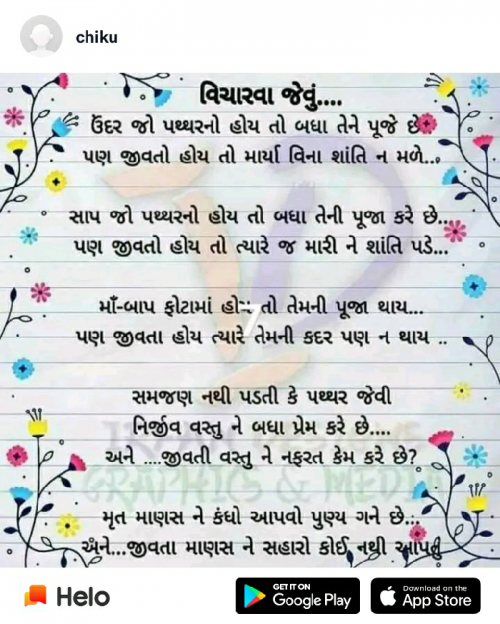 chiku
વિચારવા જેવું....
ઉંદર જો પથ્થરનો હોય તો બધા તેને પૂજે છે
પણ જીવતો હોય તો માર્યા વિના શાંતિ ન મળે..
સાપ જો પથ્થરનો હોય તો બધા તેની પૂજા કરે છે...
પણ જીવતો હોય તો ત્યારે જ મારી ને શાંતિ પડે...
માઁ-બાપ ફોટામાં હોય તો તેમની પૂજા થાય...
પણ જીવતા હોય ત્યારે તેમની કદર પણ ન થાય ..
સમજણ નથી પડતી કે પથ્થર જેવી
નિર્જીવ વસ્તુ ને બધા પ્રેમ કરે છે....
અને ....જીવતી વસ્તુ ને નફરત કેમ કરે છે?
GRAPHICS & MEDIA
મૃત માણસ ને કંધો આપવો પુણ્ય ગને છે...
અને...જીવતા માણસ ને સહારો કોઈ નથી આપતું
Helo
GET IT ON
Google Play
Download on the
App Store